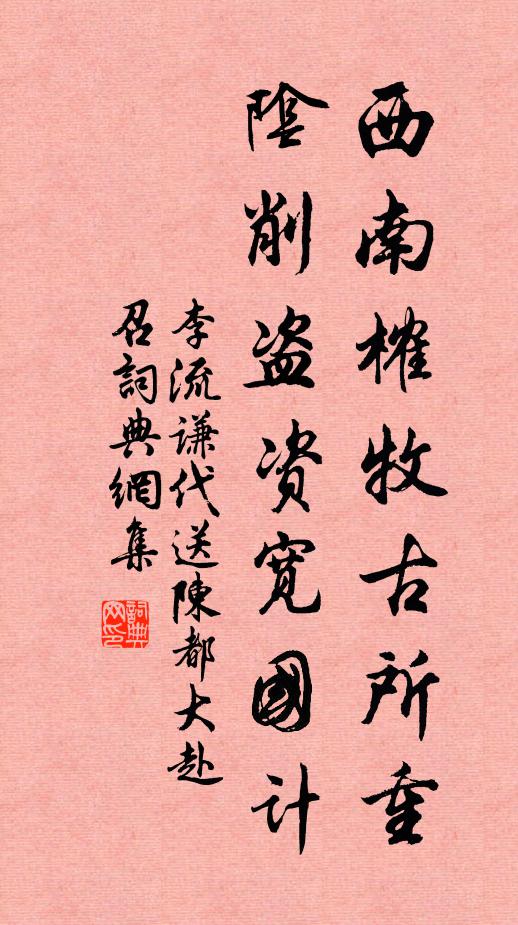 西南榷牧古所重
陰削盗资寛國计
李流谦代送陳都大赴
召詞典網集
詞典网印